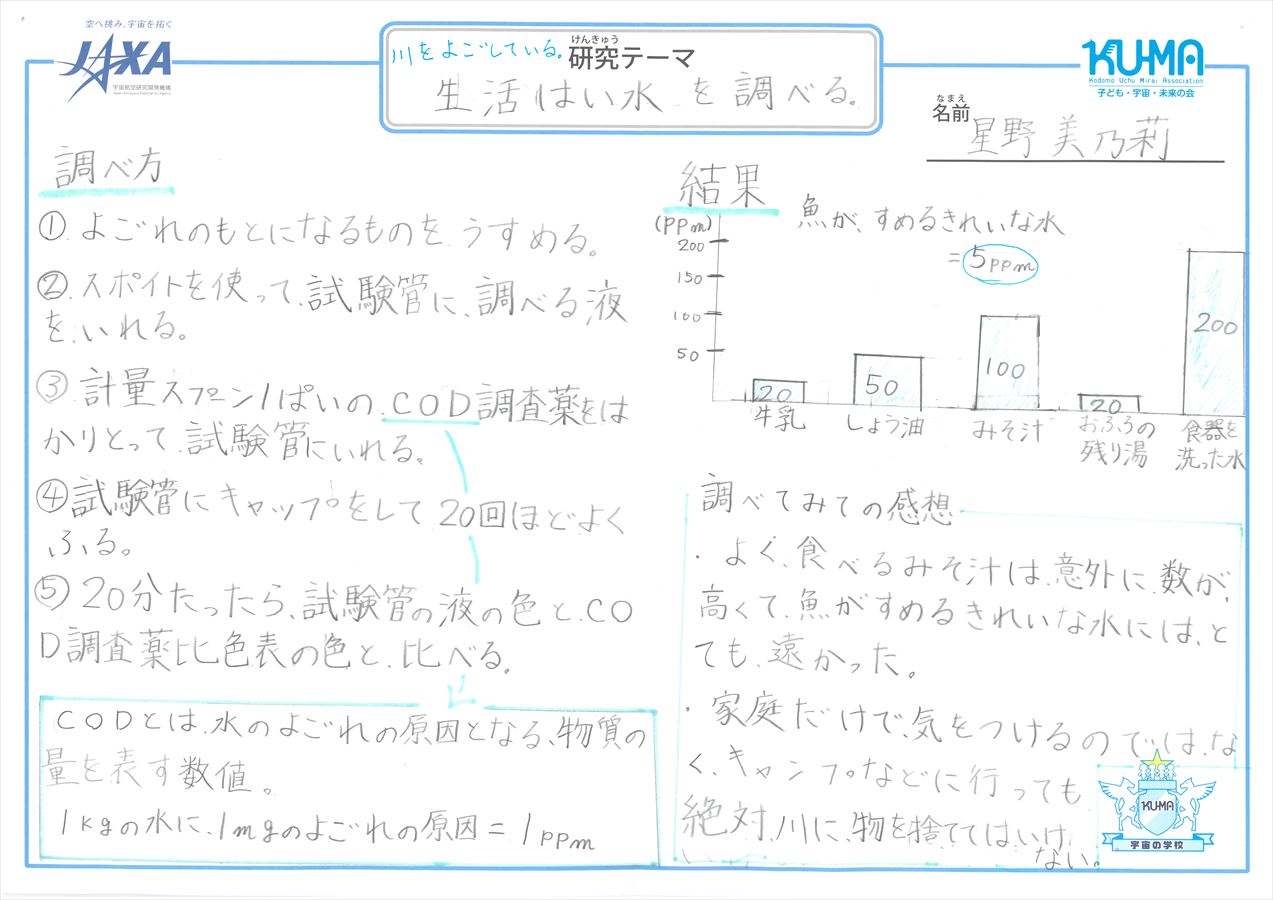 空へ挑み、宇宙を拓く
JAXA
宇宙航空研究開発機構
Japan Aerospace Exploration Agency
川をよごしている。
けんきゅう
研究テーマ
生活はい水を調べる。
KU-MA
Kodomo Uchu Mirai Association
子ども・宇宙・未来の会
なまえ
名前
星野美乃莉
調べ方
①.よごれのもとになるものを、うすめる。
②.スポイトを使って、試験管に、調べる液
を、いれる。
③計量スプーン1ぱいの、COD調査薬をは
かりとって、試験管にいれる。
④試験管にキャップをして20回ほどよく
ふる。
⑤20分たったら、試験管の液の色と、CO
D調査薬比色表の色と、比べる。
CODとは、水のよごれの原因となる、物質の
量を表す数値。
1kgの水に、1mgのよごれの原因=1ppm
結果
(ppm)
200
150
100
50
魚が、すめるきれいな水
=5ppm
20
50
100
20
200
牛乳
しょう油
みそ汁
おふろの
残り湯
食器を
洗った水
調べてみての感想
・よく、食べるみそ汁は、意外に、数が、
高くて、魚がすめるきれいな水には、と
ても、遠かった。
・家庭だけで、気をつけるのでは、な
く、キャンプなどに行っても、
絶対、川に、物を捨ててはいけ
ない。
KU-MA
宇宙の学校